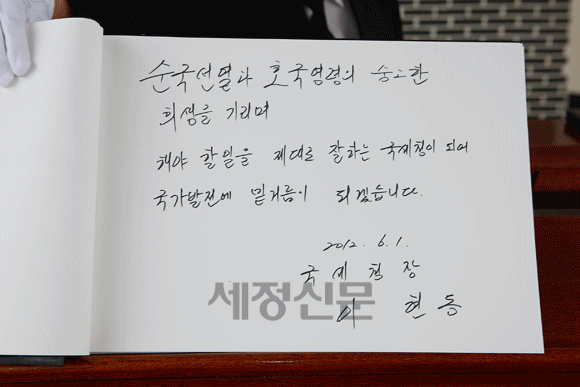 순국선열과 호국영령의 숭고한
희생을 기리며
해야 할일을 제대로 잘하는 국세청이 되어
국가발전에 밑거름이 되겠습니다.
2012. 6. 1.
국세청장
세정신문
이현동